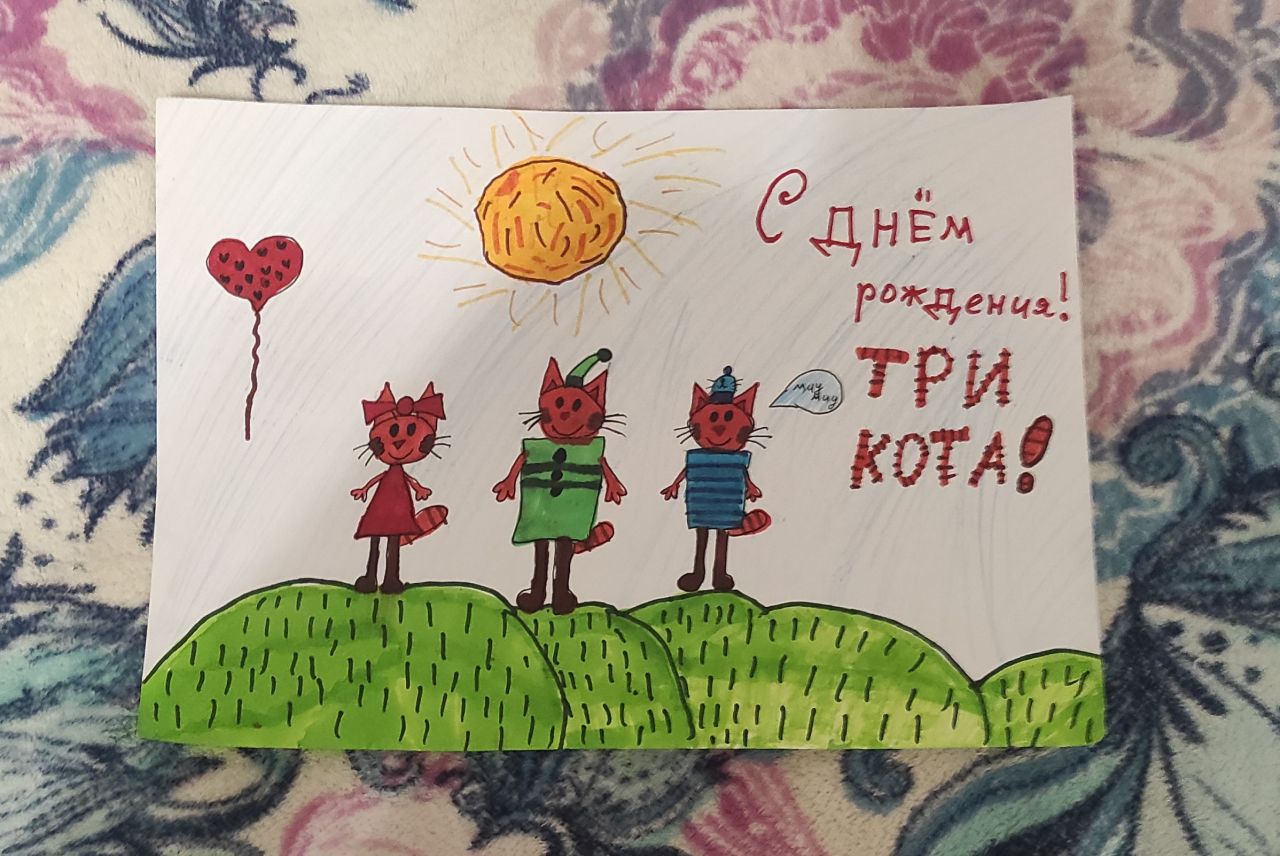 С ДНЁМ
рождения!
ТРИ
КОТА!
мяу
мяу